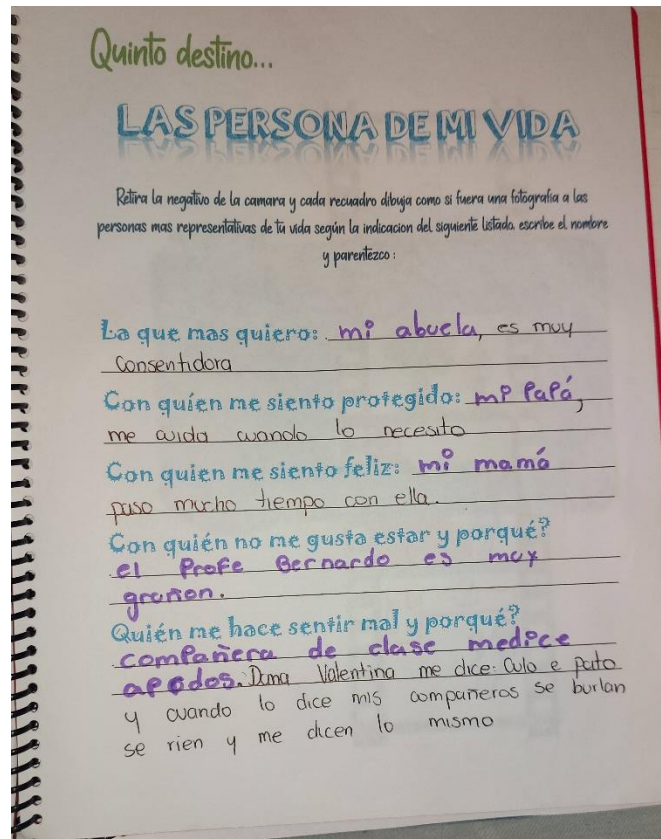 Quinto destino...
LAS PERSONA DE MI VIDA
Retira la negativo de la camara y cada recuadro dibuja como si fuera una fotografia a las
personas mas representativas de tu vida según la indicacion del siguiente listado. escribe el nombre
y parentezco :
La que mas quiero: mi abuela, es muy
consentidora
Con quién me siento protegido: mi Papá,
me cuida cuando lo necesito
Con quien me siento feliz: mi mamá
paso mucho tiempo con ella.
Con quién no me gusta estar y porqué?
el Profe Bernardo es muy
gruñon.
Quién me hace sentir mal y porqué?
compañera de clase medice
apodos. Dana Valentina me dice: Culo e pato
y cuando lo dice mis compañeros se burlan
se rien y me dicen lo mismo